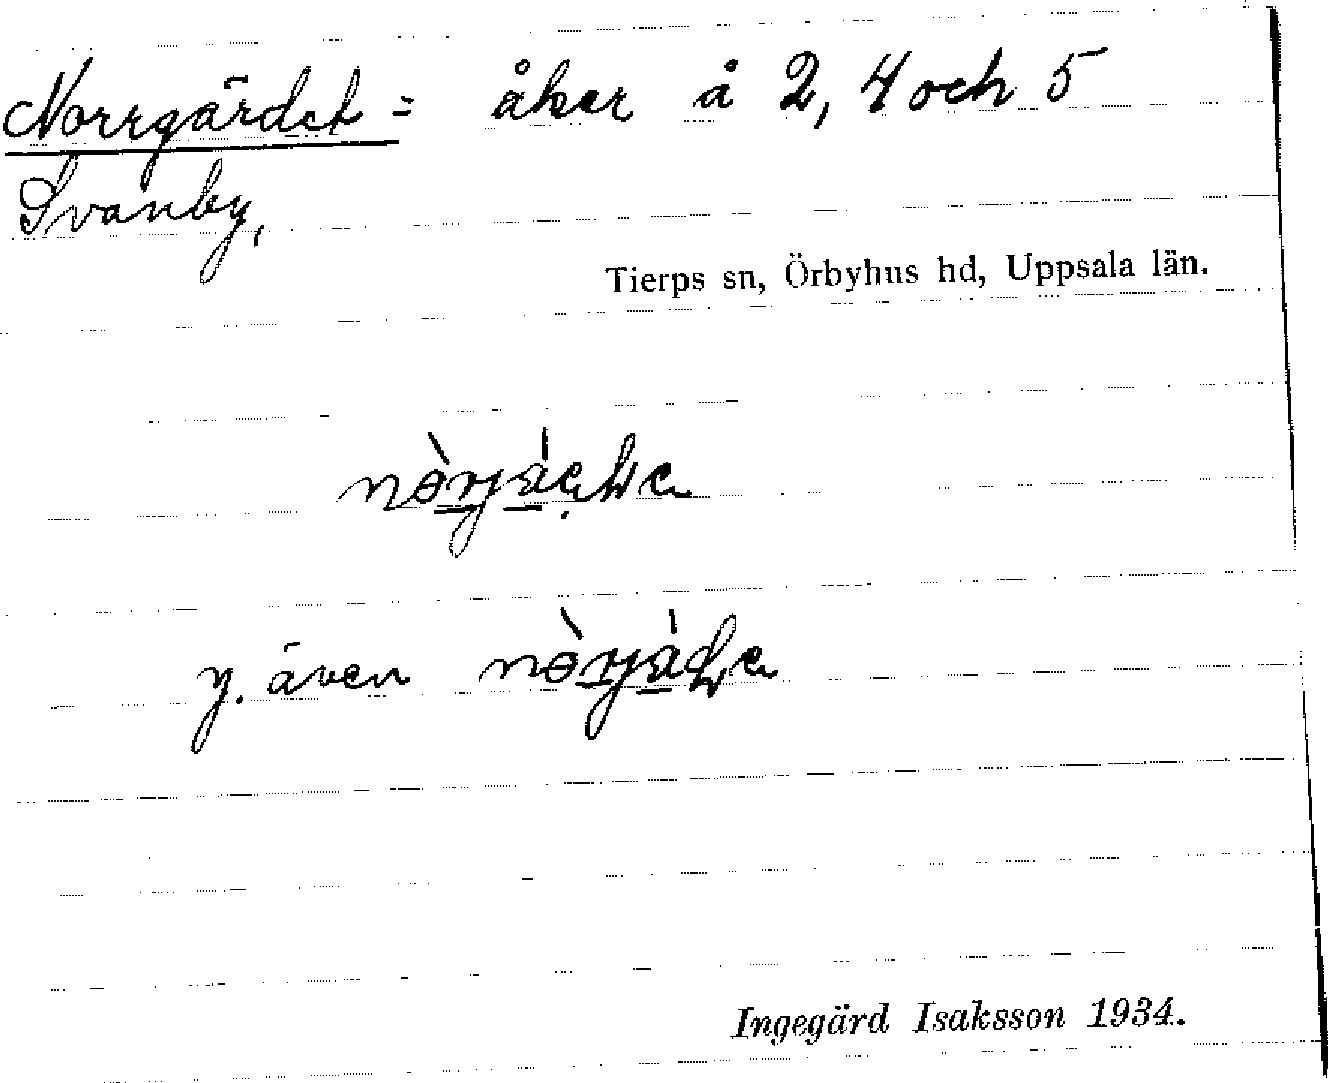 Norrgärdet = åker å 2, 4 och 5
Svanby,
Tierps sn, Örbyhus hd, Uppsala län.
y. även
Ingegärd Isaksson 1934.